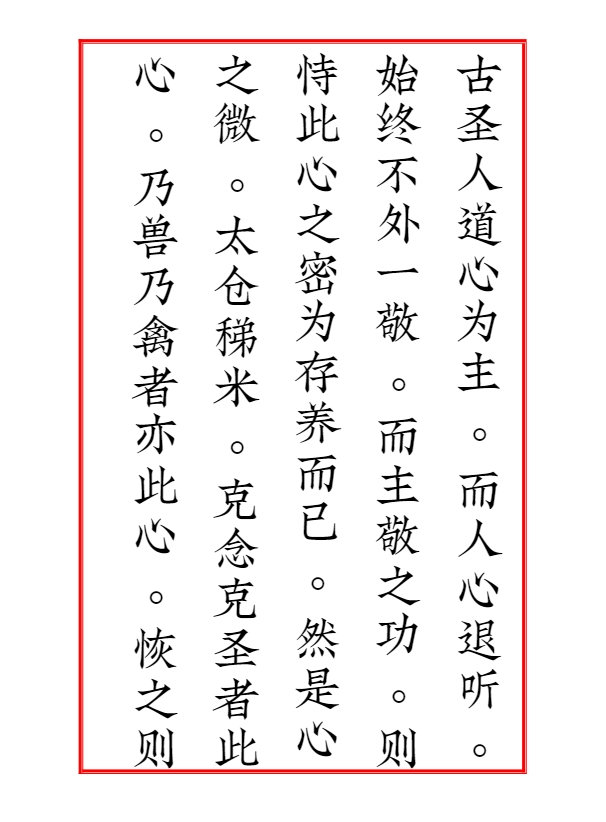 古圣人道心为主。而人心退听。
始终不外一敬。而主敬之功。则
恃此心之密为存养而已。然是心
之微。太仓稊米。克念克圣者此
心。乃兽乃禽者亦此心。恢之则